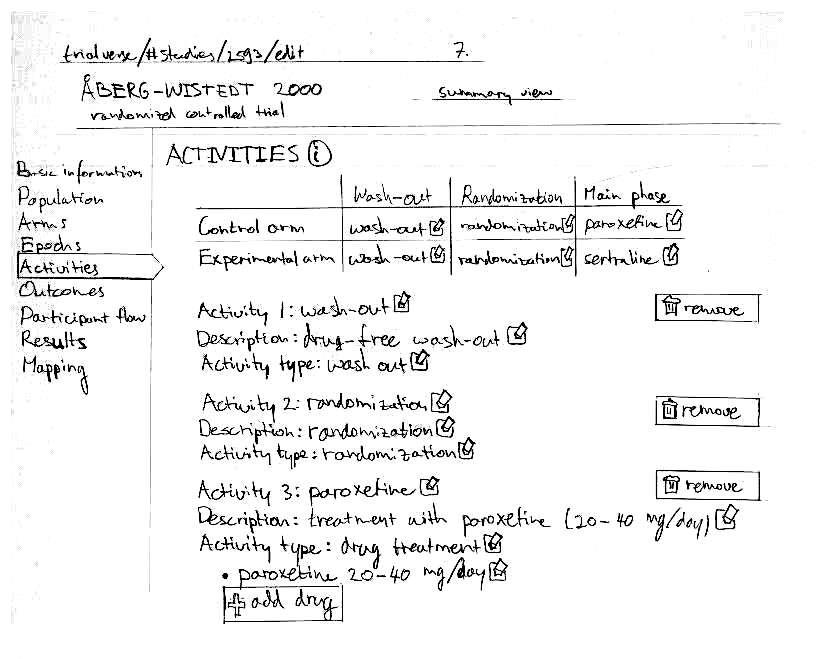 trialverse/#studies/2593/edit 7.
ÅBERG-WISTEDT 2000 summary view
randomized controlled trial
ACTIVITIES i
Basic information
Population
Arms
Epochs
Activities
Outcomes
Participant flow
Results
Mapping
Wash-out Randomization Main phase
Control arm wash-out randomization paroxetine
Experimental arm wash-out randomization sertraline
Activity 1: wash-out remove
Description: drug-free wash-out
Activity type: wash out
Activity 2: randomization remove
Description: randomization
Activity type: randomization
Activity 3: paroxetine remove
Description: treatment with paroxetine (20-40 mg/day)
Activity type: drug treatment
• paroxetine 20-40 mg/day
+ add drug